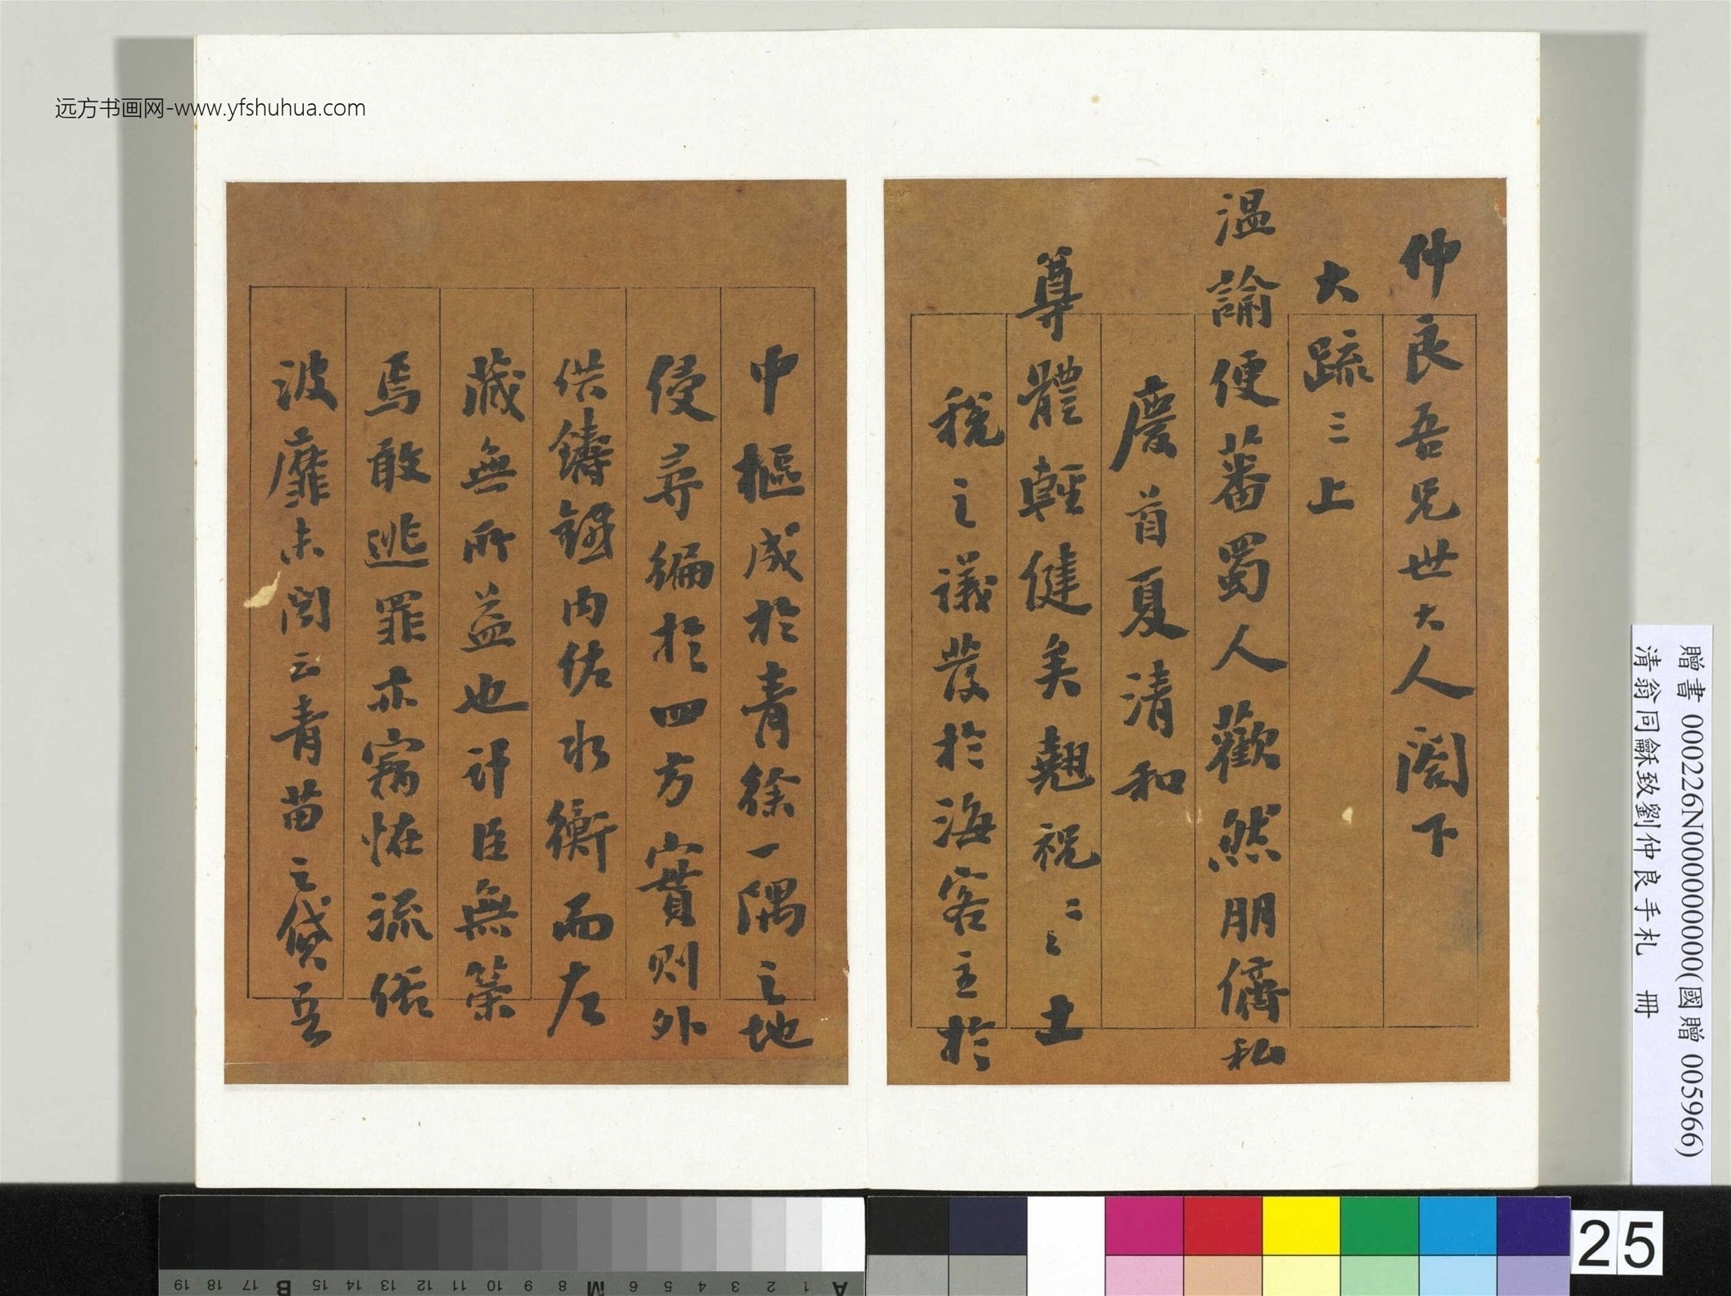 远方书画网-www.yfshuhua.com
仲良吾兄世大人閣下
大疏三上
溫諭便蕃蜀人歡然朋儕私
慶首夏清和
尊體輕健矣翹祝二二土
稅之議發於海客主於
中樞成於青徐一隅之地
侵尋編於四方實則外
供鑄錢内佐水衡而左
藏無所益也計臣無策
焉敢逃罪亦竊恠流俗
波靡未聞云青苗之貸吾
贈書 000226N000000000(國贈 005966)
清翁同龢致劉仲良手札 冊
25
19 18 17 B 15 14 13 12 11 10 9 8 M 6 5 4 3 2 1 A